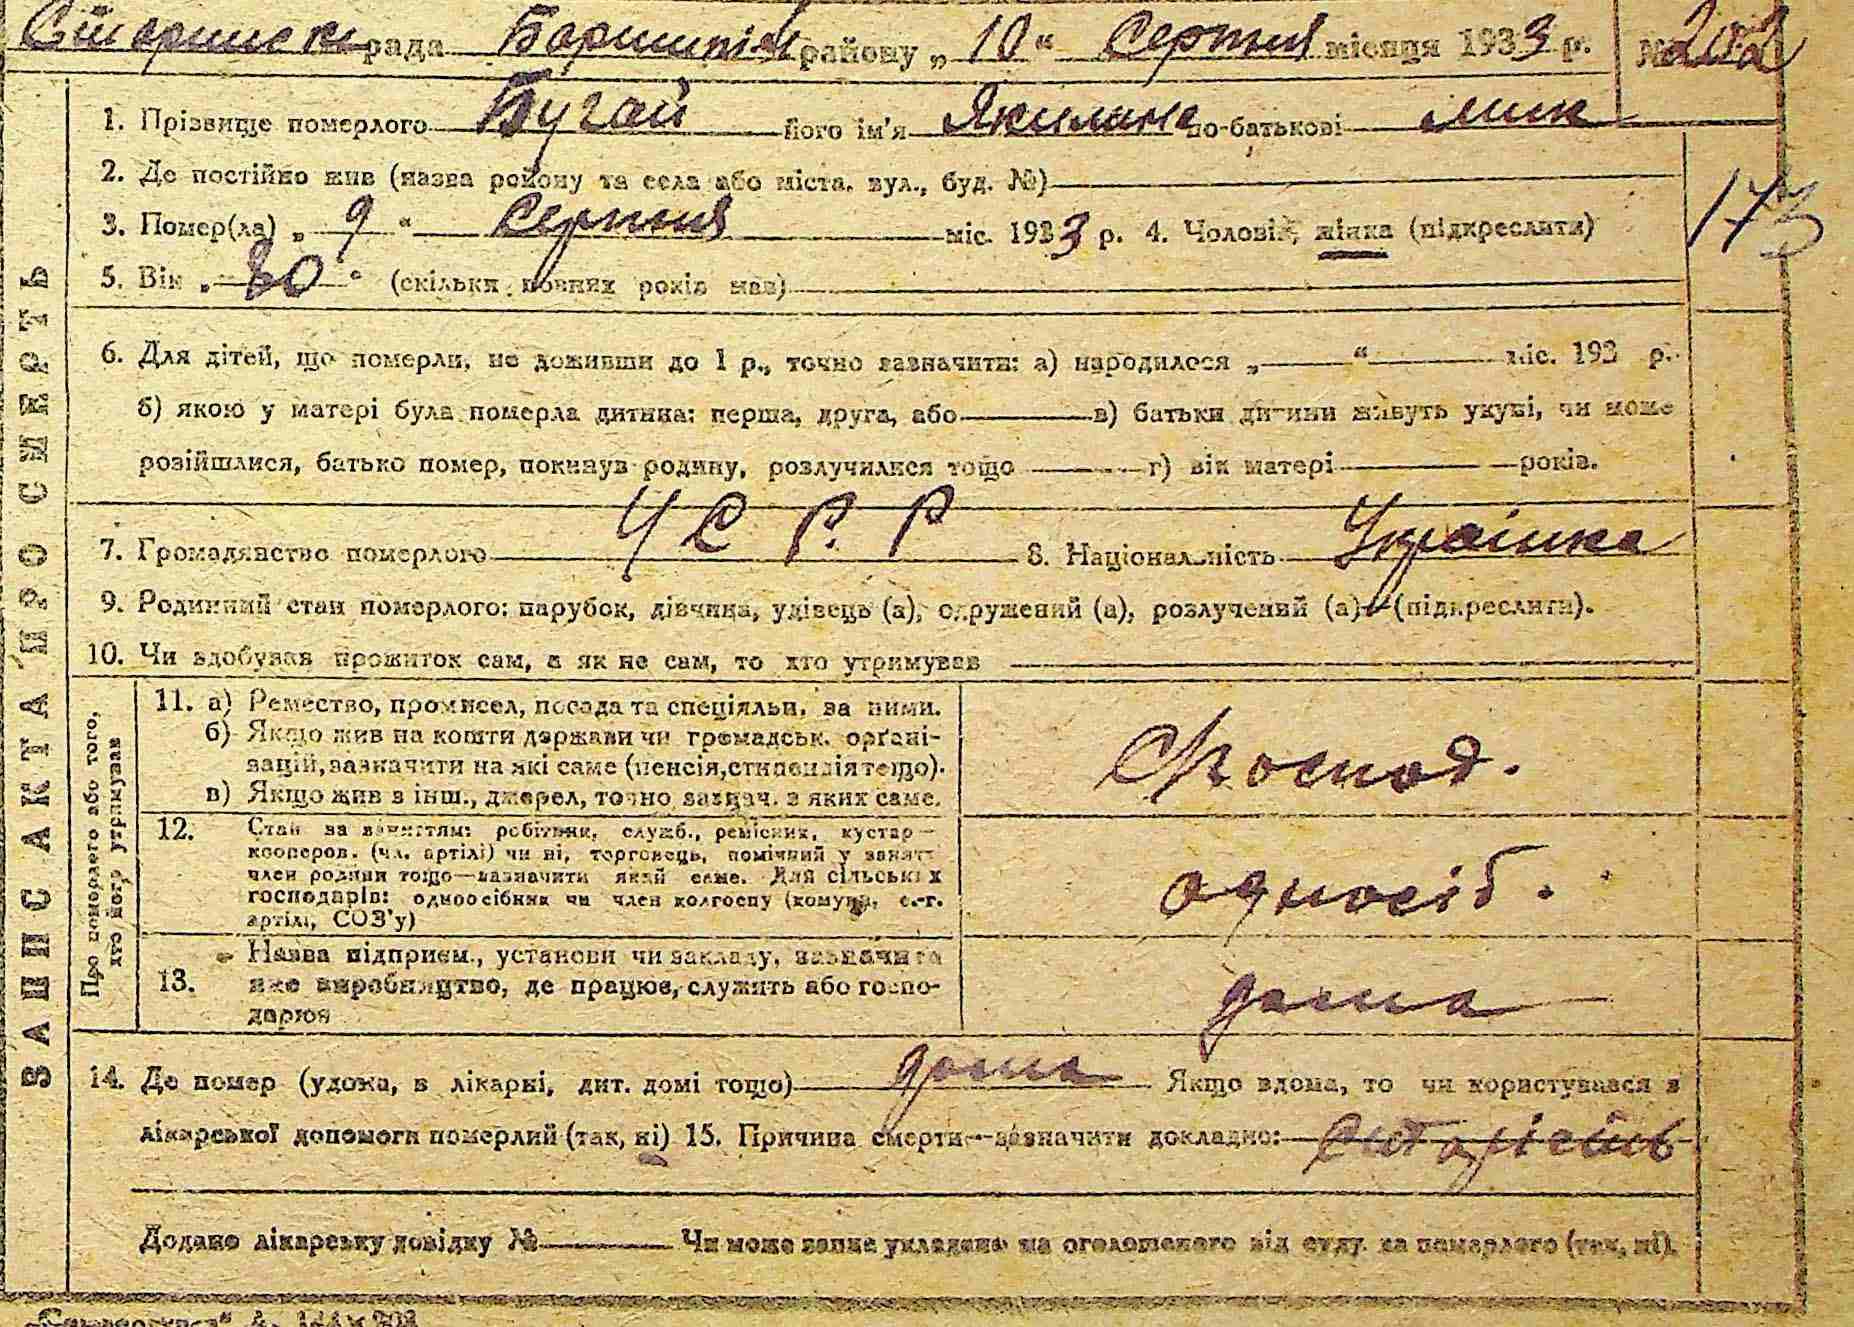 Старинська рада Бориспіль району „10“ Серпня місяця 1933 р. № 202
1. Прізвище померлого Бугай його ім'я Якилина по-батькові мик
173
2. Де постійно жив (назва району та села або міста, вул., буд. №)
3. Помер(ла) „9“ Серпня міс. 1933 р. 4. Чоловік, жінка (підкреслити)
5. Вік „80“ (скільки повних років мав)
6. Для дітей, що померли, не доживши до 1 р., точно зазначити: а) народилося „ “ міс. 193 р.
б) якою у матері була померла дитина: перша, друга, або в) батьки дитини живуть укупі, чи може
розійшлися, батько помер, покинув родину, розлучилися тощо г) вік матері років.
7. Громадянство померлого УСРР 8. Національність Українка
9. Родинний стан померлого: парубок, дівчина, удівець (а), одружений (а), розлучений (а) (підкреслити).
10. Чи здобував прожиток сам, а як не сам, то хто утримував
ЗАПИС АКТА ПРО СМЕРТЬ
Про померлого або того,
хто його утримував
11. а) Ремество, промисел, посада та спеціяльн. за ними.
б) Якщо жив на кошти держави чи громадськ. орґані-
зацій, зазначити на які саме (пенсія, стипендія тощо).
в) Якщо жив з інш., джерел, точно зазнач. з яких саме.
12. Стан за заняттям: робітник, служб., ремісник, кустар—
кооперов. (чл. артілі) чи ні, торговець, помічний у занятт
член родини тощо—зазначити який саме. Для сільських
господарів: одноосібник чи член колгоспу (комуна, с.-г.
артілі, СОЗ'у)
одноосіб.
13. Назва підприєм., установи чи закладу, зазначити
яке виробництво, де працює, служить або госпо-
дарює
дома
14. Де помер (удома, в лікарні, дит. домі тощо) дома Якщо вдома, то чи користувався з
лікарської допомоги померлий (так, ні) 15. Причина смерти—зазначити докладно: старість
Додано лікарську довідку № Чи може запис укладено на оголошеного від суду за померлого (так, ні).